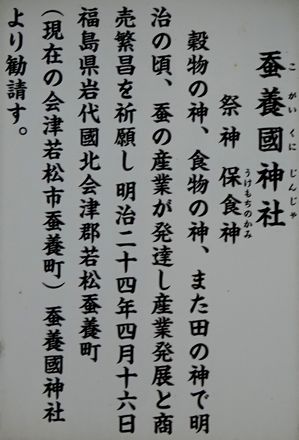 蚕養國神社
こがいくにじんじゃ
祭神 保食神
うけもちのかみ
穀物の神、食物の神、また田の神で明
治の頃、蚕の産業が発達し産業発展と商
売繁昌を祈願し明治二十四年四月十六日
福島県岩代國北会津郡若松蚕養町
(現在の会津若松市蚕養町) 蚕養國神社
より勧請す。